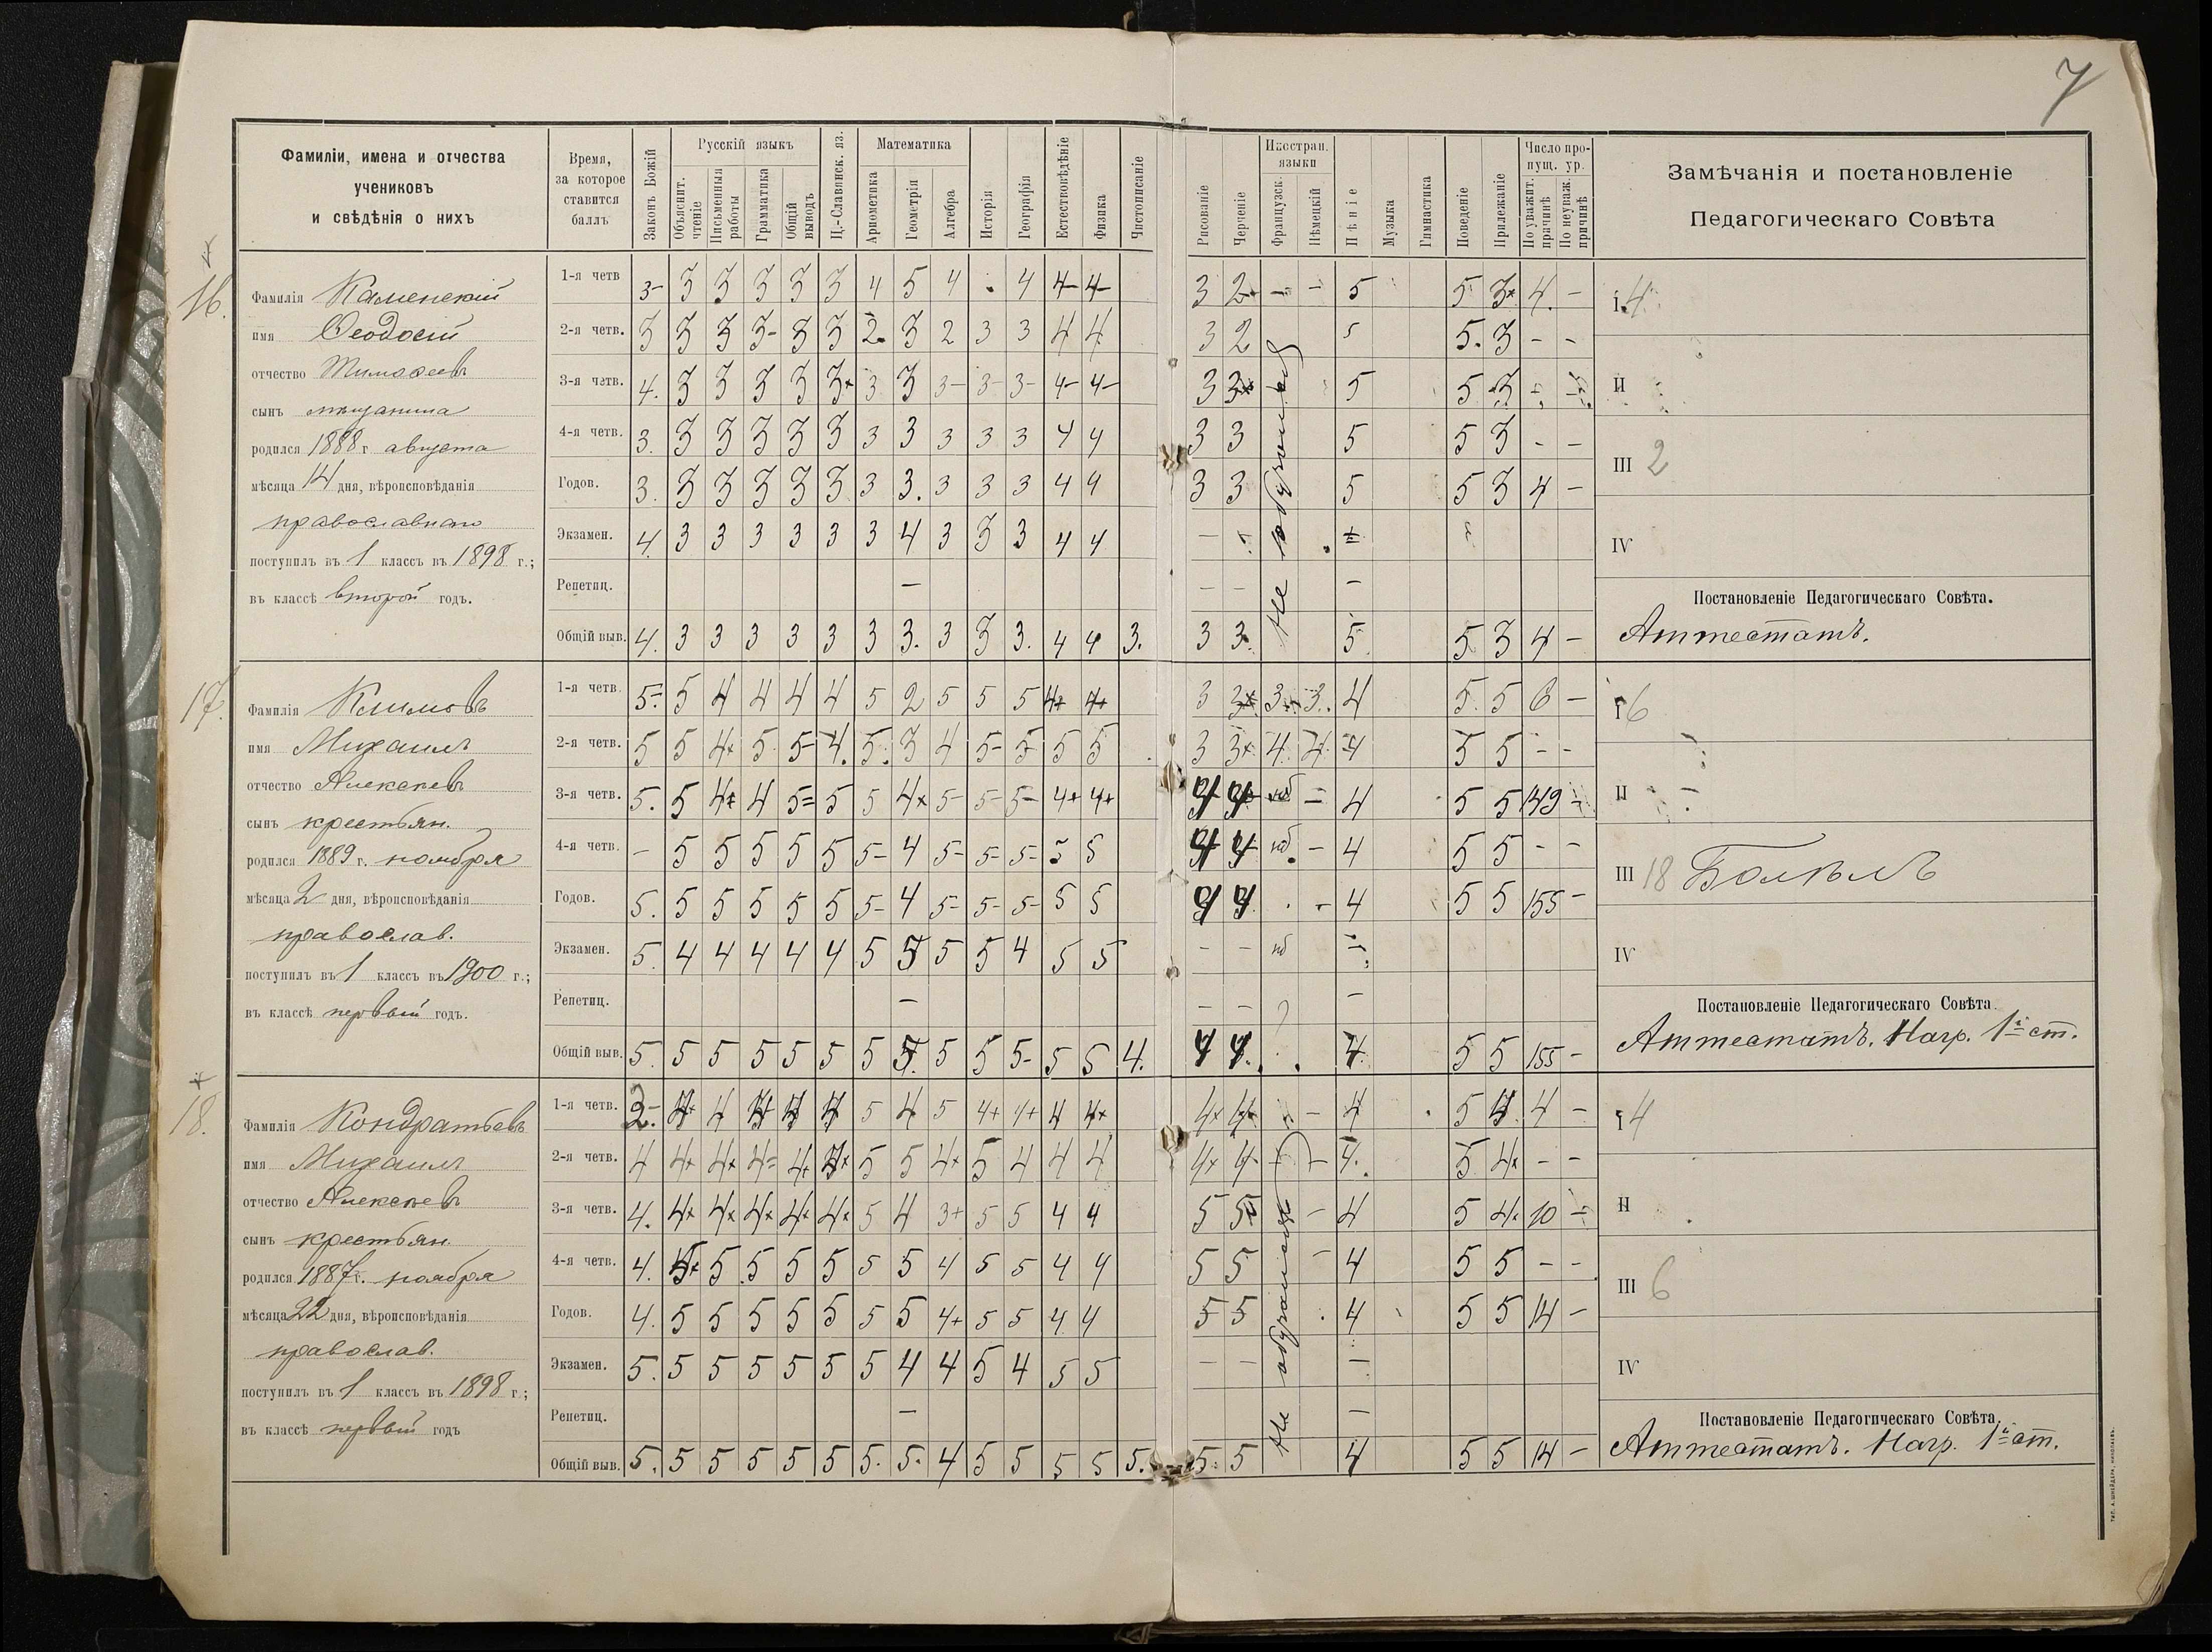 7
Фамиліи, имена и отчества
учениковъ
и свѣдѣнія о нихъ
Время,
за которое
ставится
баллъ
Законъ Божій
Русскій языкъ
Объяснит. чтеніе
Письменныя работы
Грамматика
Общій выводъ
Ц.-Славянск. яз.
Математика
Ариѳметика
Геометрія
Алгебра
Исторія
Географія
Естествовѣдѣніе
Физика
Чистописаніе
Рисованіе
Черченіе
Иностран. языки
Французск.
Нѣмецкій
Пѣніе
Музыка
Гимнастика
Поведеніе
Прилежаніе
Число пропущ. ур.
По уважит. причинѣ
По неуваж. причинѣ
Замѣчанія и постановленіе
Педагогическаго Совѣта
16.
Фамилія Каменскій
имя Ѳеодосій
отчество Тимоѳеевъ
сынъ мѣщанина
родился 1888 г. августа
мѣсяца 14 дня, вѣроисповѣданія
православнаго
поступилъ въ 1 классъ въ 1898 г.;
въ классѣ второй годъ.
1-я четв 3- 3 3 3 3 3 4 5 4 . 4 4- 4- 3 2+ - - 5 5 3+ 4. -
2-я четв. 3 3 3 3- 3 3 2. 3 2 3 3 4 4 3 2 5 5. 3 - -
3-я четв. 4. 3 3 3 3 3+ 3 3 3- 3- 3- 4- 4- 3 3+ 5 5 3 - -
4-я четв. 3. 3 3 3 3 3 3 3 3 3 3 4 4 3 3 5 5 3 - -
Годов. 3. 3 3 3 3 3 3 3. 3 3 3 4 4 3 3 5 5 3 4 -
Экзамен. 4. 3 3 3 3 3 3 4 3 3 3 4 4 -
Репетиц. - - - -
Общій выв. 4. 3 3 3 3 3 3 3. 3 3 3. 4 4 3. 3 3. 5. 5 3 4 -
Не обучался
I. 4
II
III 2
IV
Постановленіе Педагогическаго Совѣта.
Аттестатъ.
17.
Фамилія Климовъ
имя Михаилъ
отчество Алексѣевъ
сынъ крестьян.
родился 1889 г. ноября
мѣсяца 2 дня, вѣроисповѣданія
православ.
поступилъ въ 1 классъ въ 1900 г.;
въ классѣ первый годъ.
1-я четв. 5= 5 4 4 4 4 5 2 5 5 5 4+ 4+ 3 3+ 3 3. 4 5 5 6 -
2-я четв. 5 5 4+ 5 5- 4. 5. 3 4 5- 5 5 5 3 3+ 4 4 4 5 5 - -
3-я четв. 5. 5 4+ 4 5= 5 5 4+ 5- 5- 5- 4+ 4+ 4 4 нб - 4 5 5 149 -
4-я четв. - 5 5 5 5 5 5- 4 5- 5- 5- 5 5 4 4 нб. - 4 5 5 - -
Годов. 5. 5 5 5 5 5 5- 4 5- 5- 5- 5 5 4 4 . - 4 5 5 155 -
Экзамен. 5. 4 4 4 4 4 5 5 5 5 4 5 5 - - нб -
Репетиц. - - - -
Общій выв. 5. 5 5 5 5 5 5 5. 5 5 5- 5 5 4. 4 4. . . 4. 5 5 155 -
I 6
II
III 18 Болѣлъ
IV
Постановленіе Педагогическаго Совѣта.
Аттестатъ. Нагр. 1й ст.
18.
Фамилія Кондратьевъ
имя Михаилъ
отчество Алексѣевъ
сынъ крестьян.
родился 1887 г. ноября
мѣсяца 22 дня, вѣроисповѣданія
православ.
поступилъ въ 1 классъ въ 1898 г.;
въ классѣ первый годъ
1-я четв. 2- 4+ 4 4 4 4 5 4 5 4+ 4+ 4 4+ 4+ 4+ - 4 5 4 4 -
2-я четв. 4 4+ 4+ 4= 4+ 4+ 5 5 4+ 5 4 4 4 4+ 4- - - 4. 5 4+ - -
3-я четв. 4. 4+ 4+ 4+ 4+ 4+ 5 4 3+ 5 5 4 4 5 5 - 4 5 4+ 10 -
4-я четв. 4. 5+ 5 5 5 5 5 5 4 5 5 4 4 5 5 - 4 5 5 - -
Годов. 4. 5 5 5 5 5 5 5 4+ 5 5 4 4 5 5 . 4 5 5 14 -
Экзамен. 5. 5 5 5 5 5 5 4 4 5 4 5 5 - - -
Репетиц. - -
Общій выв. 5. 5 5 5 5 5 5. 5. 4 5 5 5 5 5. 5. 5 4 5 5 14 -
Не обучался
I 4
II
III 6
IV
Постановленіе Педагогическаго Совѣта.
Аттестатъ. Нагр. 1й ст.
ТИП. А. ШНЕЙДЕРА, НИКОЛАЕВЪ.